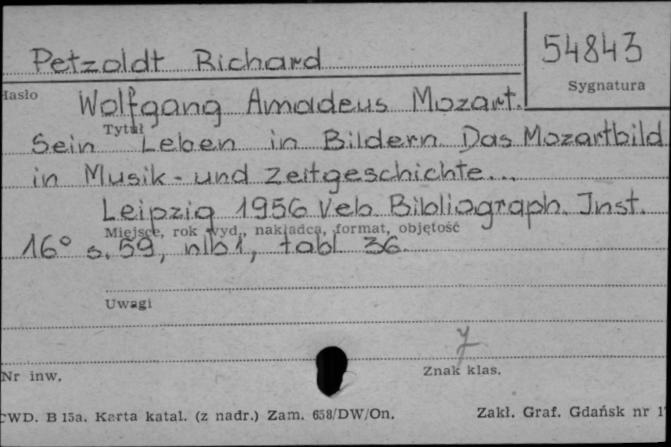 Petzoldt Richard
54843
Hasło
Sygnatura
Wolfgang Amadeus Mozart.
Tytuł
Sein Leben in Bildern. Das Mozartbild
in Musik- und Zeitgeschichte...
Leipzig 1956 Veb. Bibliograph. Inst.
Miejsce, rok wyd., nakładca, format, objętość
16° s. 59, nlb 1, tabl 36.
Uwagi
7
Nr inw.
Znak klas.
CWD. B 15a. Karta katal. (z nadr.) Zam. 658/DW/On.
Zakł. Graf. Gdańsk nr 1